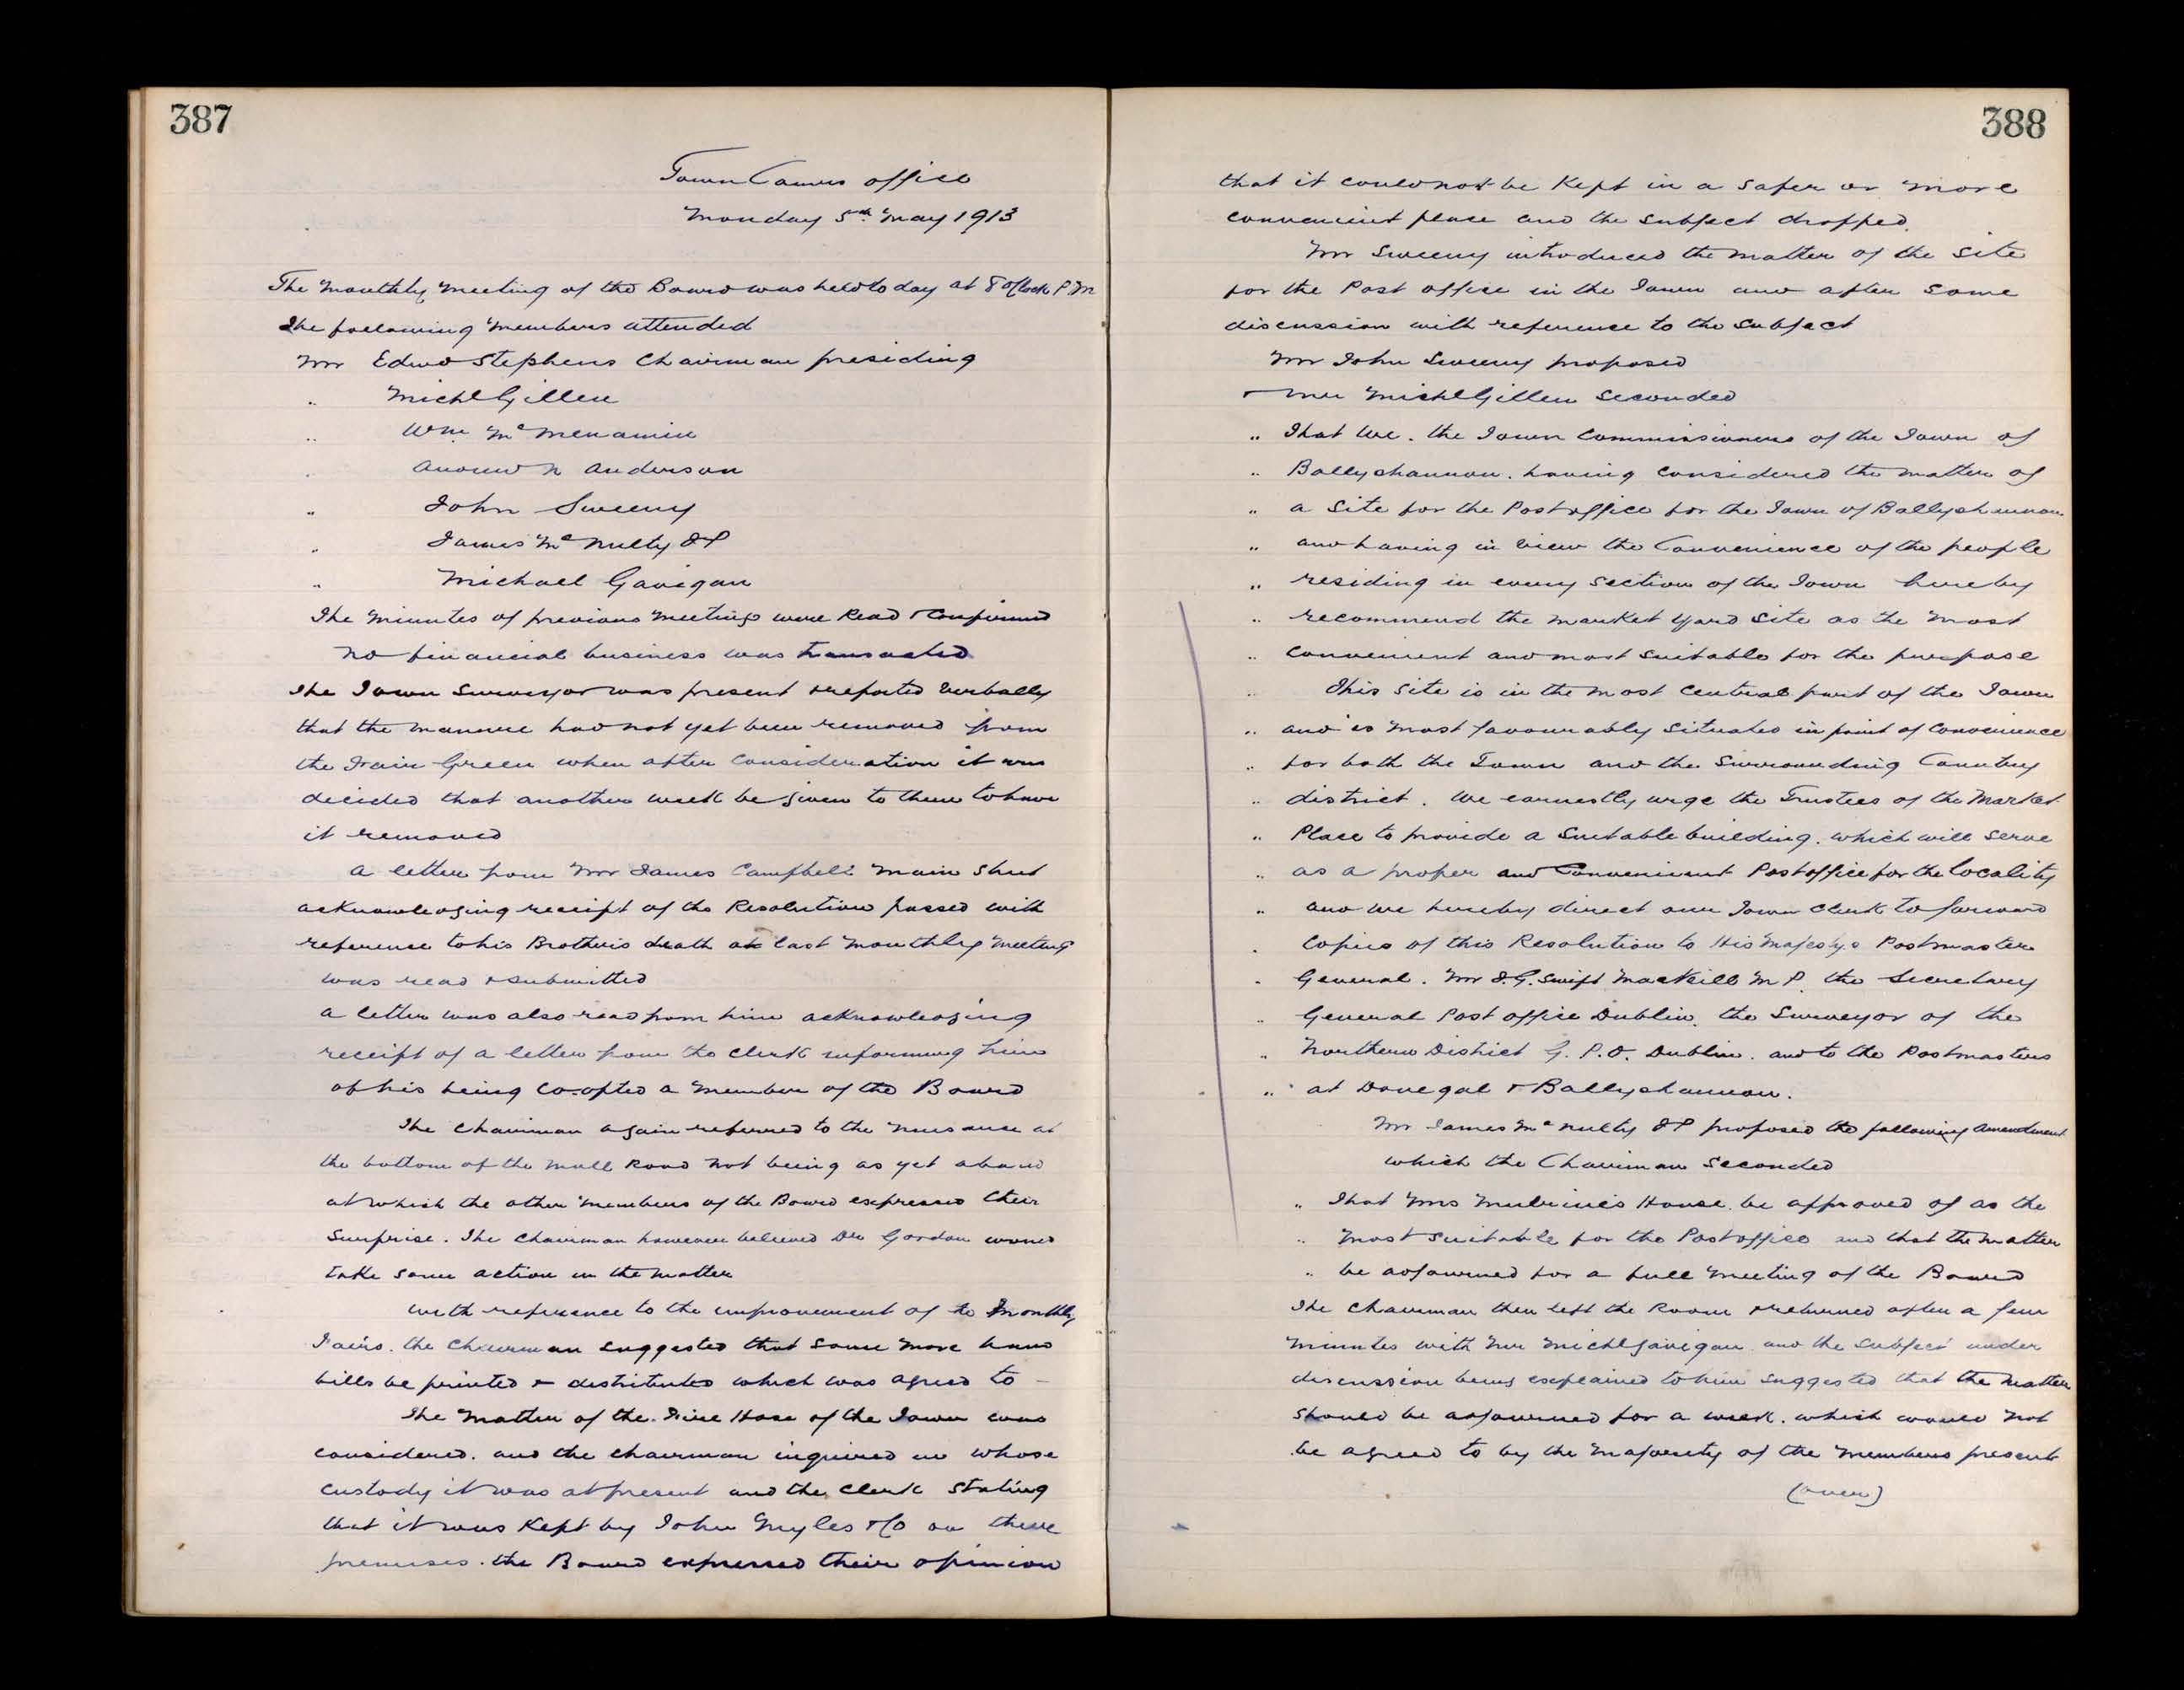 387
Town Comrs office
Monday 5th May 1913
The Monthly Meeting of the Board was held to day at 8 oClock P.M
The following Members attended
Mr Edwd Stephens Chairman presiding
" Michl Gillen
" Wm McMenamin
" Andrew N Anderson
" John Sweeny
" James McNulty JP
" Michael Gavigan
The Minutes of previous Meetings were Read & Confirmed
No financial business was transacted
The Town Surveyor was present & reported verbally
that the manure had not yet been removed from
the Fair Green when after consideration it was
decided that another week be given to them to have
it removed
A letter from Mr James Campbell Main Street
acknowledging receipt of the Resolution passed with
reference to his Brothers death at last Monthly Meeting
was read & submitted
A letter was also read from him acknowledging
receipt of a letter from the Clerk informing him
of his being Co-opted a Member of the Board
The Chairman again referred to the Nuisance at
the bottom of the Mall Road not being as yet abated
at which the other Members of the Board expressed their
Surprise. The Chairman however believed Dr Gordon would
take some action in the matter
With reference to the improvement of the Monthly
Fairs. the Chairman suggested that some more hand
bills be printed & distributed which was agreed to -
The Matter of the Fire Hose of the Town was
considered. and the Chairman inquired in whose
custody it was at present and the Clerk stating
that it was Kept by John Myles & Co on their
premises. the Board expressed their opinion
388
that it could not be Kept in a safer or more
convenient place and the subject dropped.
Mr Sweeny introduced the matter of the Site
for the Post office in the Town and after some
discussion with reference to the subject
Mr John Sweeny proposed
& Mr Michl Gillen Seconded
" That We. the Town Commissioners of the Town of
" Ballyshannon. having considered the matter of
" a Site for the Post office for the Town of Ballyshannon
" and having in view the Convenience of the people
" residing in every section of the Town hereby
" recommend the Market Yard Site as the most
" convenient and most suitable for the purpose
" This site is in the most central part of the Town
" and is most favourably situated in point of Convenience
" for both the Town and the Surrounding Country
" district. We earnestly urge the Trustees of the Market
" Place to provide a Suitable building. which will serve
" as a proper and Convenient Post office for the locality
" and we hereby direct our Town Clerk to forward
" Copies of this Resolution to His Majestys Postmaster
" General. Mr J.G. Swift MacNeill M P. the Secretary
" General Post office Dublin. the Surveyor of the
" Northern District G. P.O. Dublin. and to the Postmasters
" at Donegal & Ballyshannon.
Mr James McNulty JP proposed the following amendment
which the Chairman Seconded
" That Mrs House be approved of as the
" most suitable for the Post office and that the matter
" be adjourned for a full Meeting of the Board
The Chairman then left the Room & returned after a few
minutes with Mr Michl Gavigan and the subject under
discussion being explained to him suggested that the matter
should be adjourned for a week. which would not
be agreed to by the Majority of the Members present
(over)